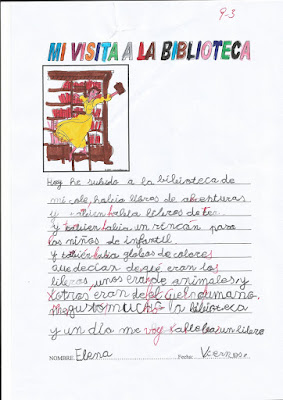 9-3
MI VISITA A LA BIBLIOTECA
Hoy he subido a la biblioteca de
mi cole, había libros de aventuras
y también había libros de
y también había un rincón para
los niños de infantil
y también había globos de colores
que decían de qué eran los
libros, unos eran de animales y
otros eran del cuerpo humano.
me gustó mucho la biblioteca
y un día me voy a un libro
NOMBRE: Elena Fecha: Viernes